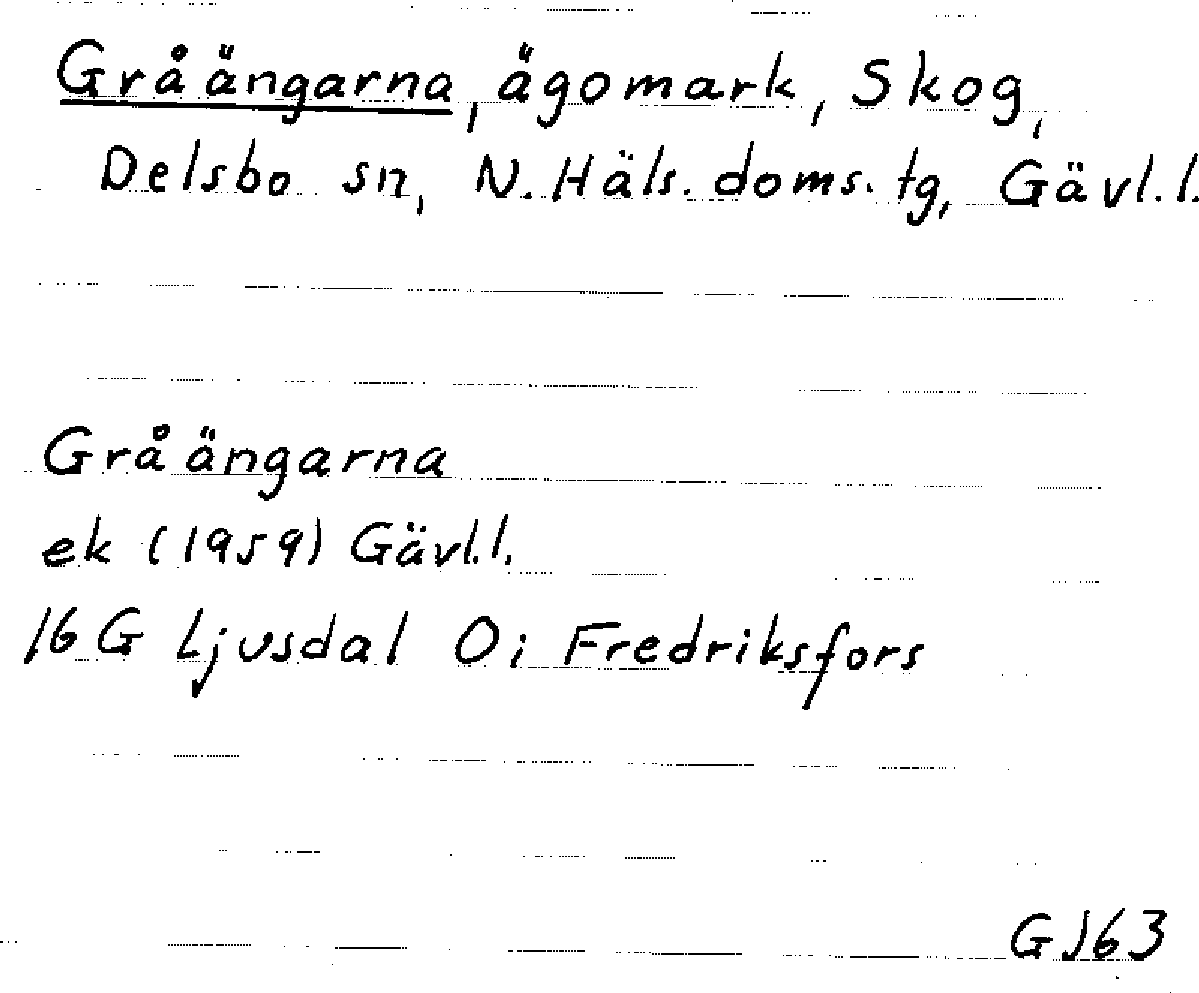 Gråängarna, ägomark, Skog,
Delsbo sn, N. Häls. doms. tg, Gävl. l.
Gråängarna
ek (1959) Gävl. l.
16 G Ljusdal 0i Fredriksfors
GJ63